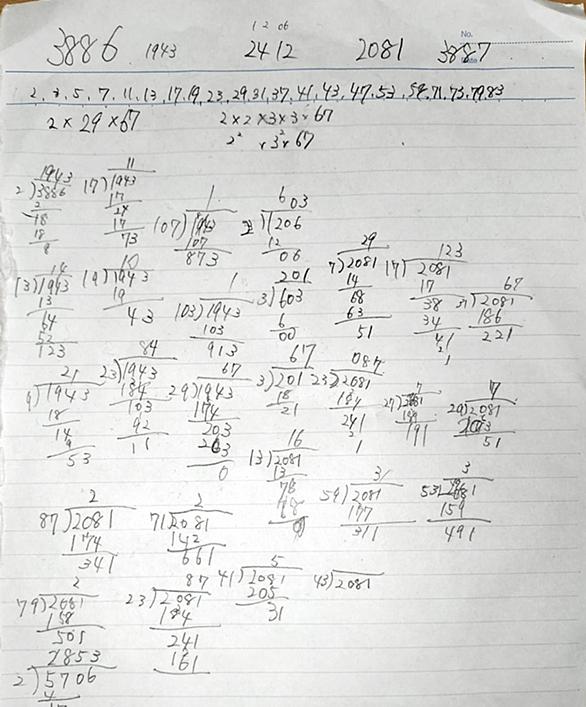 1 2 06
3886 1943 2412 2081 3887
No.
2, 3, 5, 7, 11, 13, 17, 19, 23, 29, 31, 37, 41, 43, 47, 53, 59, 71, 73, 79, 83
2 × 29 × 67 2 × 2 × 3 × 3 × 67
2² × 3² × 67
1943 11
2)3886 17)1943 1 603
2 17 107)1943 2)1206
18 24 107 12
18 17 873 06 29 123
73 7)2081 17)2081
14 10 201 14 17 67
13)1943 19)1943 1 3)603 68 38 31)2081
13 19 103)1943 6 63 34 186
64 43 103 00 51 41 221
52 913
123
21 84 67 67 087
9)1943 23)1943 29)1943 3)201 23)2081
18 184 174 18 184 29)2081
14 103 203 21 241 191 51
9 92 203 1
53 11 0 16
13)2081
13 31 3
78 59)2081 53)2081
2 2 78 177 159
87)2081 71)2081 311 491
174 142
341 661 5
2 87 41)2081 43)2081
79)2081 23)2081 205
158 184 31
501 241
2853 161
2)5706
4
17